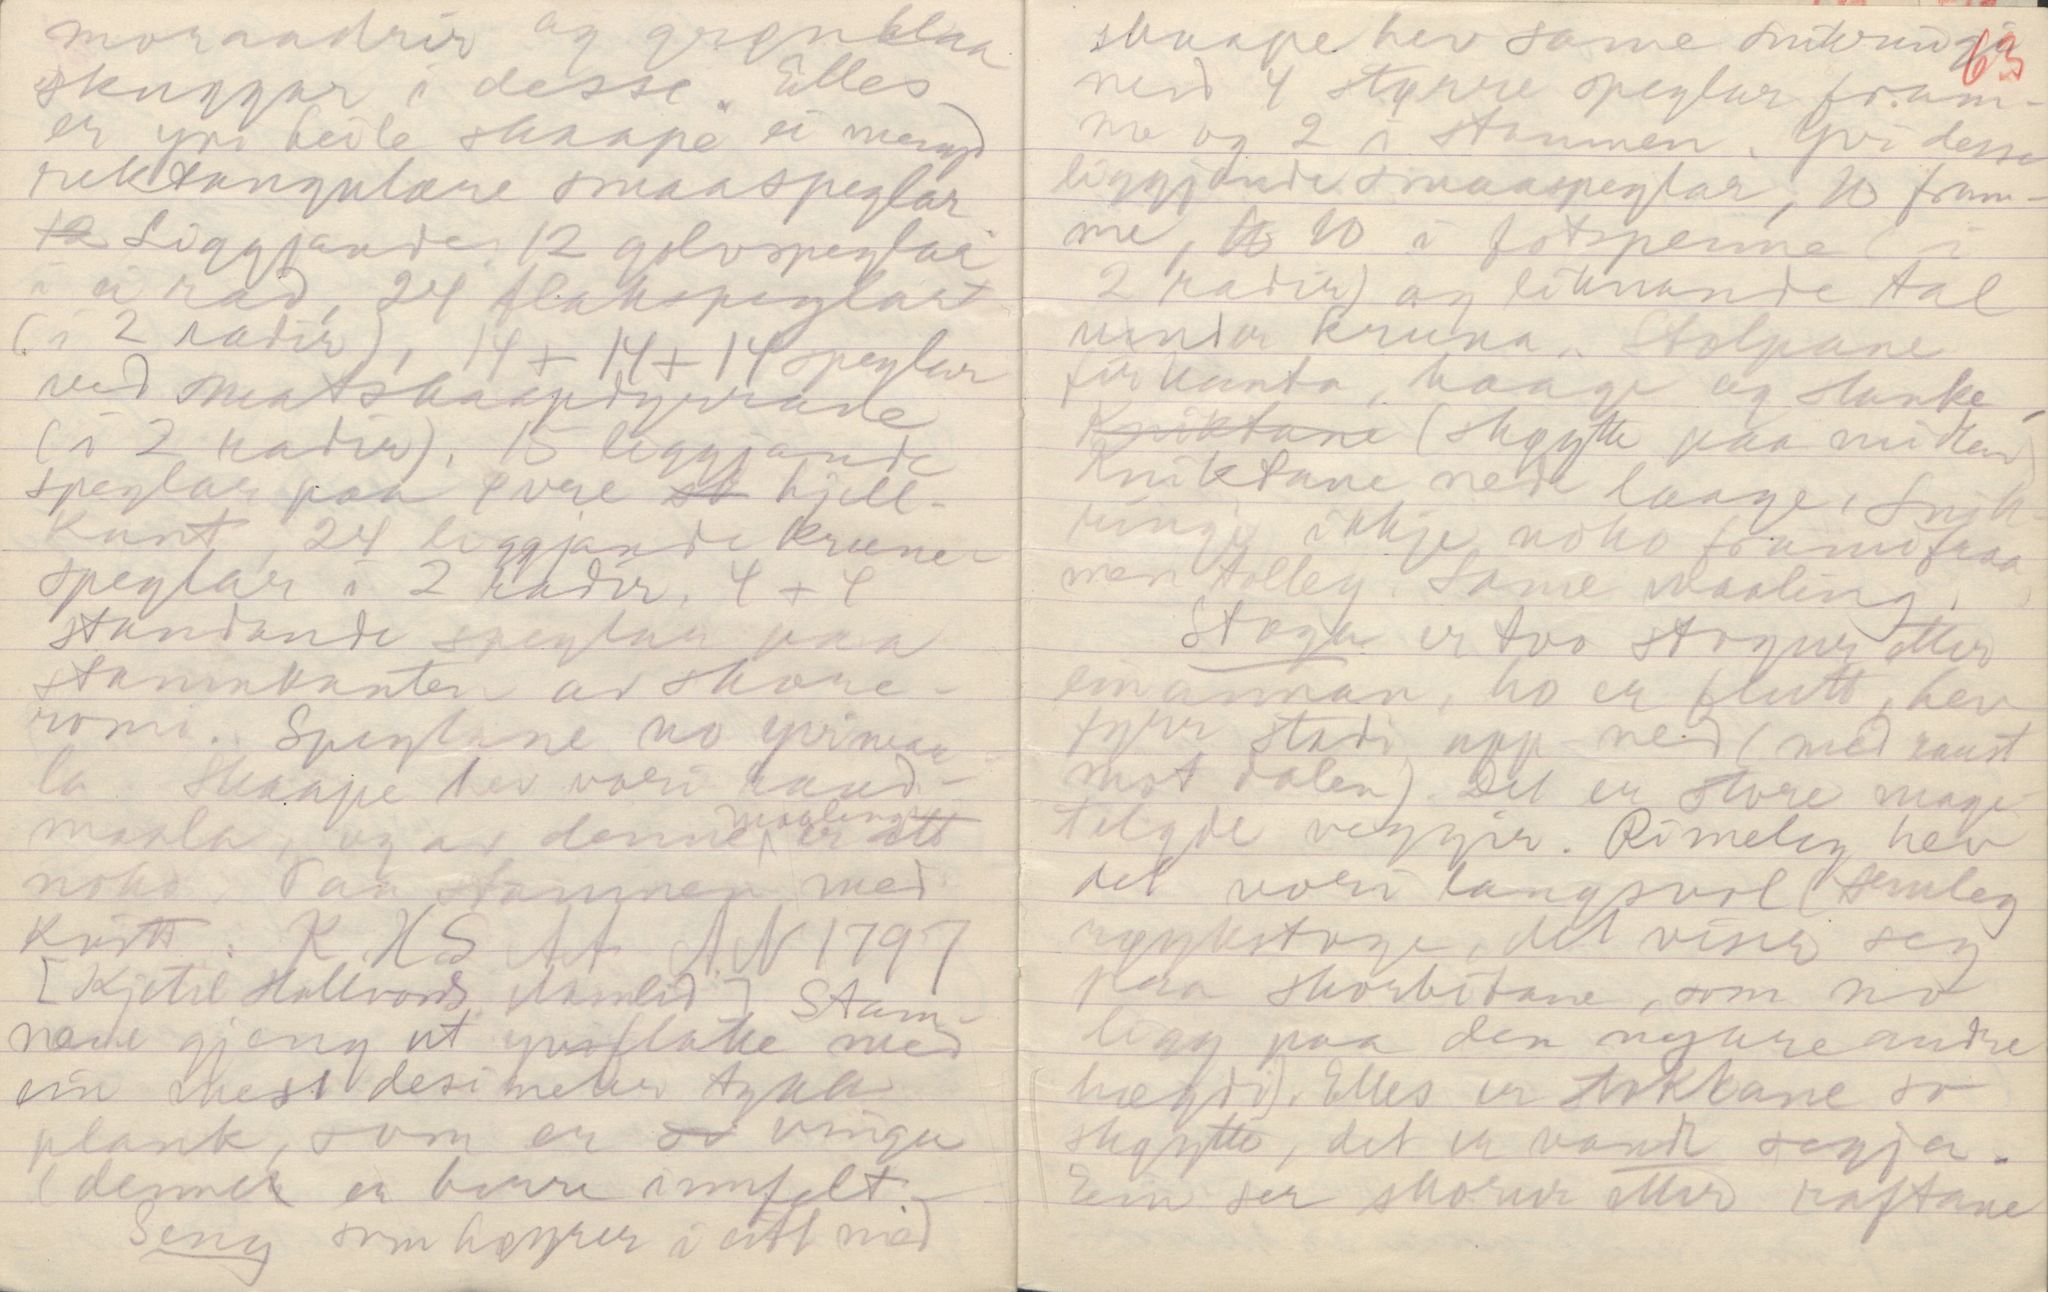 moraadrir og grønblaa
skuggar i desse. Elles
er yvi heile skaape ei mengd
rektangulære smaaspeglar
Liggjande 12 golvspeglar
i ei rad, 24 flakspeglar
(i 2 radir), 14 + 14 + 14 speglar
ved matskaapdyrrane
(i 2 radir), 15 liggjande
speglar paa øvre hjell-
kant, 24 liggjande krune
speglar i 2 radir, 4 + 4
standande speglar paa
stammkanten av skore-
romi. Speglane no yvimaa
la. Skaape hev vori raud-
maala, og av denne maalingi er att
noko. Paa stammen med
kvitt: K HS AA AN 1797
[Kjetil Hallvords Aamlid] Stam-
nane gjeng ut yvi flake med
ein mest desimeter tykk
plank, som er vingu
(denne er berre innfelt
Seng som høyrer i eitt med
skaape hev same snikringi 63
med 4 større speglar fram-
me og 2 i stammen. Yvi desse
liggjande smaaspeglar, 10 fram-
me, 10 i fotspenne (i
2 radir) og liknande tal
under kruna. Stolpane
firkanta, haage og slanke,
Kniktane (skøytte paa midten)
Kniktane nede laage. Snik-
ringi ikkje noko framifraa
men tolleg. Same maaling.
Stoga er tvo stogur etter
einannan, ho er flutt, hev
fyrr stadi opp-ned (med raust
mot dalen). Det er store mogi
telgde veggir. Rimeleg hev
det vori langsvol (truleg
røykstoge, det viser seg
paa skorbitane, som no
ligg paa den nyare andre
høgdi). Elles er stokkane so
skøytte, det er vandt segja.
Ein ser skorur etter raftane